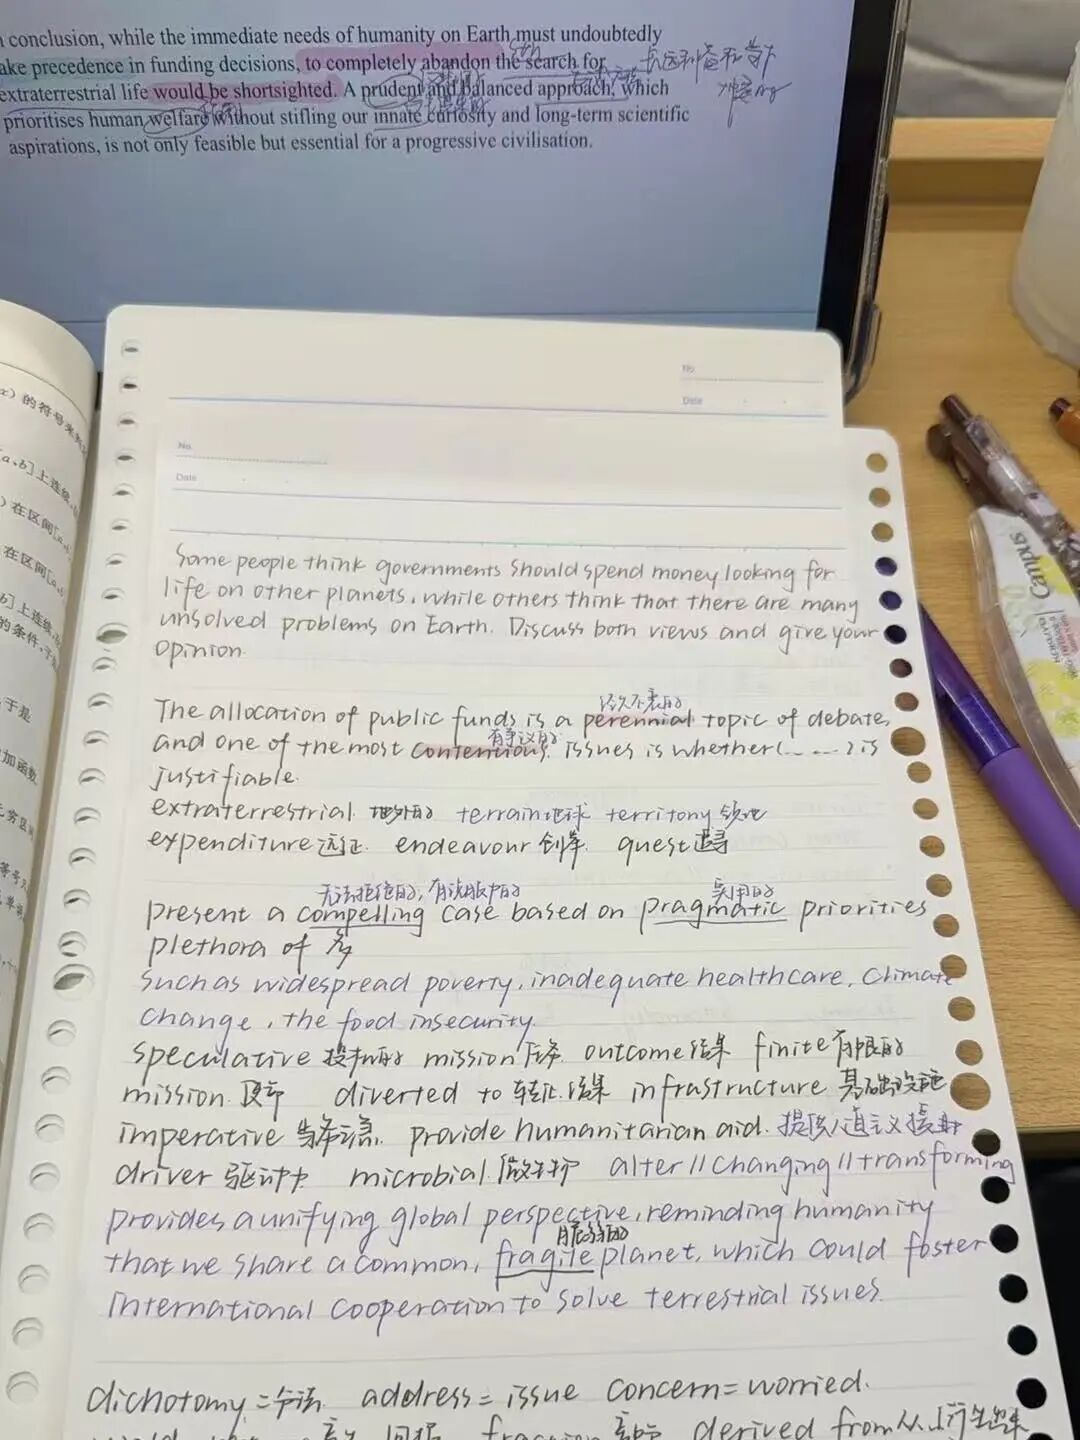 conclusion, while the immediate needs of humanity on Earth must undoubtedly
ake precedence in funding decisions, to completely abandon the search for
extraterrestrial life would be shortsighted. A prudent and balanced approach, which
prioritises human welfare without stifling our innate curiosity and long-term scientific
aspirations, is not only feasible but essential for a progressive civilisation.
No
Date
No.
Date
的符号来
[a,b]上连续,
在区间[a,b]
在区间[a,b
b]上连续,
的条件,
于是
加函数
Campus
Some people think governments should spend money looking for
life on other planets, while others think that there are many
unsolved problems on Earth. Discuss both views and give your
opinion.
经久不衰的
The allocation of public funds is a perennial topic of debate,
有争议的
and one of the most contentious issues is whether (... ...) is
justifiable.
extraterrestrial 地外的 terrain地球 territory 领地
expenditure 远征. endeavour 创举. quest 追寻
无法拒绝的, 有说服力的 实用的
present a compelling case based on pragmatic priorities
plethora of 多
such as widespread poverty, inadequate healthcare, climate
change, the food insecurity.
speculative 投机的 mission 任务. outcome 结果 finite 有限的
mission. diverted to 转征. 结果 infrastructure 基础设施
imperative 当务之急. provide humanitarian aid. 提供人道主义援助
driver 驱动力 microbial. alter // changing // transforming
provides a unifying global perspective, reminding humanity
脆弱的
that we share a common, fragile planet, which could foster
international cooperation to solve terrestrial issues.
dichotomy 二分法. address = issue concern = worried.
derived from 从